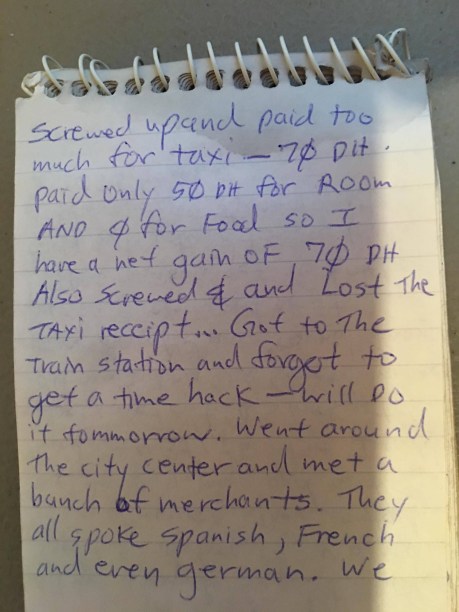 Screwed up and paid too
much for taxi — 7∅ DH.
paid only 5∅ DH for Room
AND ∅ for Food so I
have a net gain OF 7∅ DH
Also screwed & and Lost The
TAXi receipt... Got to The
Train station and forgot to
get a time hack — will Do
it tommorrow. Went around
The city center and met a
bunch of merchants. They
all spoke spanish, French
and even german. We